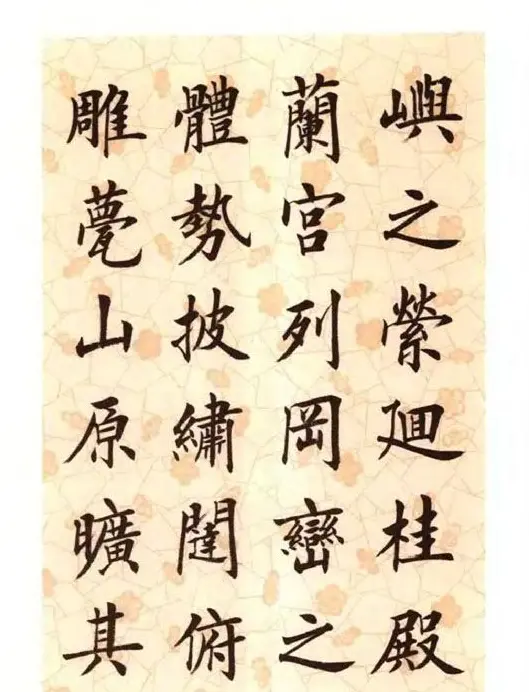 嶼之縈廻桂殿
蘭宫列岡巒之
體勢披繡闥俯
雕甍山原曠其